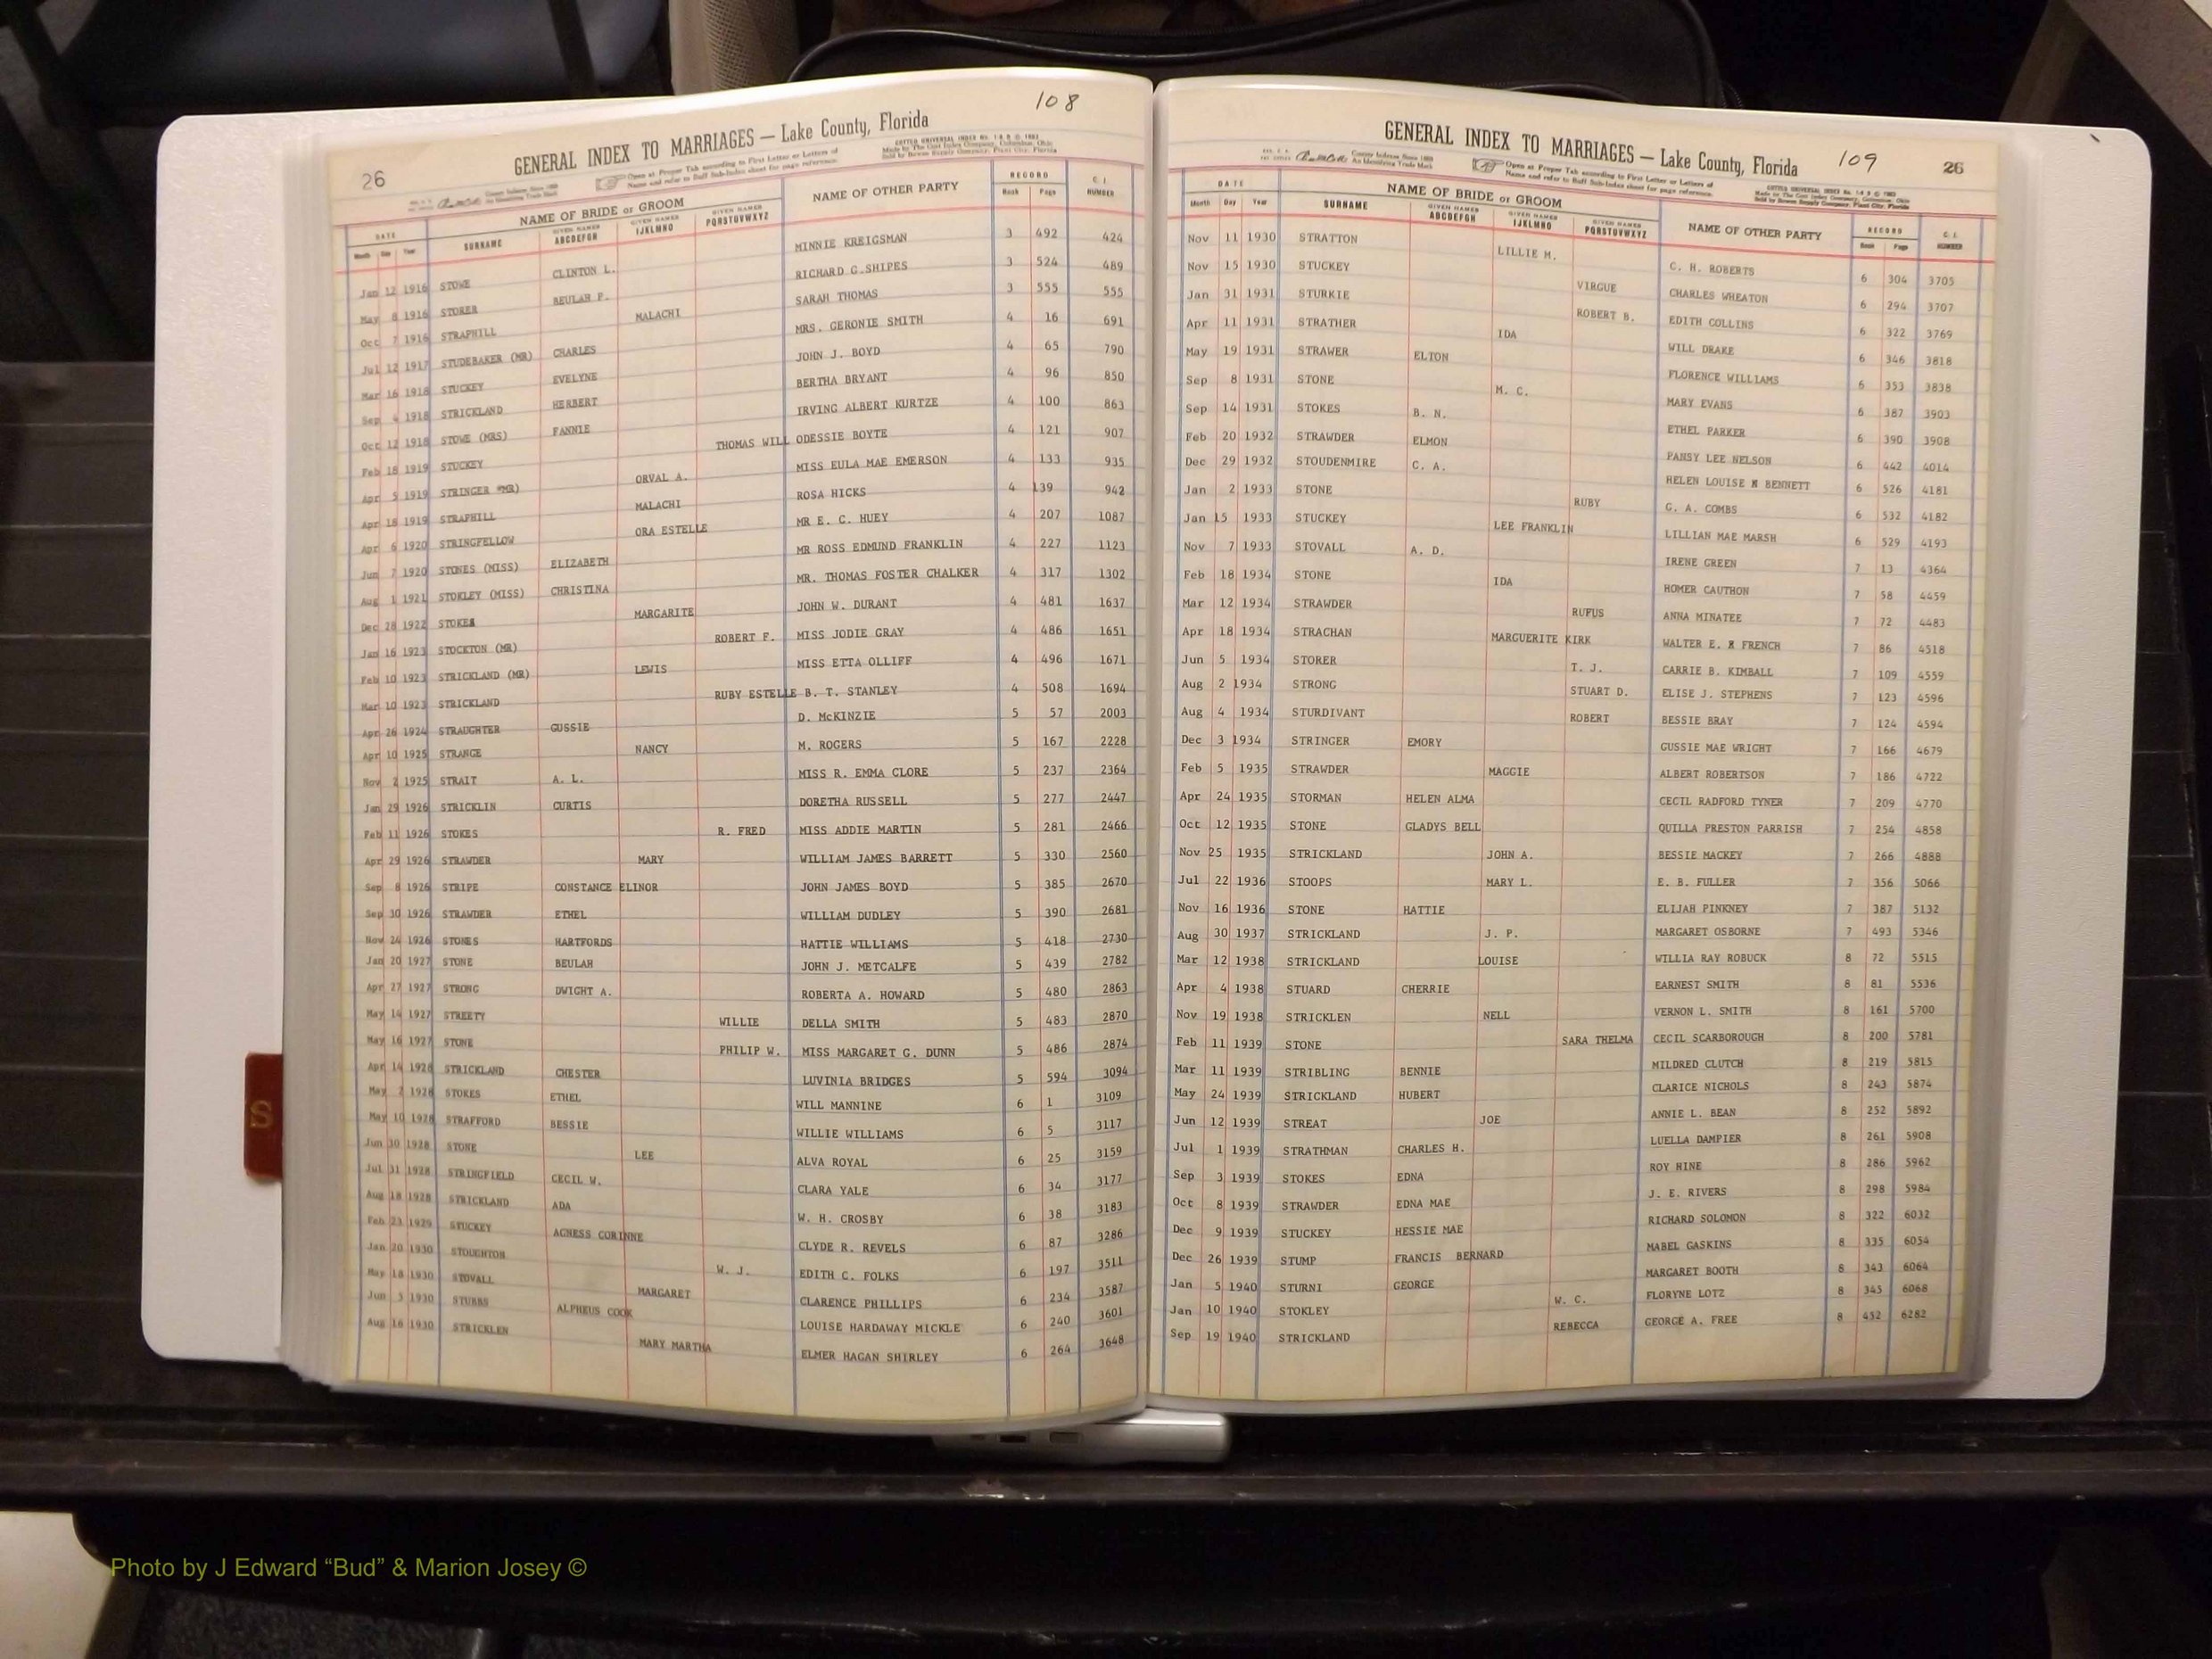 108
26
GENERAL INDEX TO MARRIAGES — Lake County, Florida
Open at Proper Tab according to First Letter or Letters of
Name and refer to Buff Sub-Index sheet for page reference.
DATE NAME OF BRIDE or GROOM NAME OF OTHER PARTY RECORD C. I. NUMBER
Month Day Year SURNAME GIVEN NAMES ABCDEFGH GIVEN NAMES IJKLMNO GIVEN NAMES PQRSTUVWXYZ Book Page
Jan 12 1916 STOWE CLINTON L. MINNIE KREIGSMAN 3 492 424
May 8 1916 STORER BEULAH P. RICHARD G.SHIPES 3 524 489
Oct 7 1916 STRAPHILL MALACHI SARAH THOMAS 3 555 555
Jul 12 1917 STUDEBAKER (MR) CHARLES MRS. GERONIE SMITH 4 16 691
Mar 16 1918 STUCKEY EVELYNE JOHN J. BOYD 4 65 790
Sep 4 1918 STRICKLAND HERBERT BERTHA BRYANT 4 96 850
Oct 12 1918 STOWE (MRS) FANNIE IRVING ALBERT KURTZE 4 100 863
Feb 18 1919 STUCKEY THOMAS WILL ODESSIE BOYTE 4 121 907
Apr 5 1919 STRINGER MR) ORVAL A. MISS EULA MAE EMERSON 4 133 935
Apr 18 1919 STRAPHILL MALACHI ROSA HICKS 4 139 942
Apr 6 1920 STRINGFELLOW ORA ESTELLE MR E. C. HUEY 4 207 1087
Jun 7 1920 STONES (MISS) ELIZABETH MR ROSS EDMUND FRANKLIN 4 227 1123
Aug 1 1921 STOKLEY (MISS) CHRISTINA MR. THOMAS FOSTER CHALKER 4 317 1302
Dec 28 1922 STOKES MARGARITE JOHN W. DURANT 4 481 1637
Jan 16 1923 STOCKTON (MR) ROBERT F. MISS JODIE GRAY 4 486 1651
Feb 10 1923 STRICKLAND (MR) LEWIS MISS ETTA OLLIFF 4 496 1671
Mar 10 1923 STRICKLAND RUBY ESTELLE B. T. STANLEY 4 508 1694
Apr 26 1924 STRAUGHTER GUSSIE D. McKINZIE 5 57 2003
Apr 10 1925 STRANGE NANCY M. ROGERS 5 167 2228
Nov 2 1925 STRAIT A. L. MISS R. EMMA CLORE 5 237 2364
Jan 29 1926 STRICKLIN CURTIS DORETHA RUSSELL 5 277 2447
Feb 11 1926 STOKES R. FRED MISS ADDIE MARTIN 5 281 2466
Apr 29 1926 STRAWDER MARY WILLIAM JAMES BARRETT 5 330 2560
Sep 8 1926 STRIPE CONSTANCE ELINOR JOHN JAMES BOYD 5 385 2670
Sep 30 1926 STRAWDER ETHEL WILLIAM DUDLEY 5 390 2681
Nov 24 1926 STONES HARTFORDS HATTIE WILLIAMS 5 418 2730
Jan 20 1927 STONE BEULAH JOHN J. METCALFE 5 439 2782
Apr 27 1927 STRONG DWIGHT A. ROBERTA A. HOWARD 5 480 2863
May 14 1927 STREETY WILLIE DELLA SMITH 5 483 2870
May 16 1927 STONE PHILIP W. MISS MARGARET G. DUNN 5 486 2874
Apr 14 1928 STRICKLAND CHESTER LUVINIA BRIDGES 5 594 3094
May 2 1928 STOKES ETHEL WILL MANNINE 6 1 3109
May 10 1928 STRAFFORD BESSIE WILLIE WILLIAMS 6 5 3117
Jun 30 1928 STONE LEE ALVA ROYAL 6 25 3159
Jul 31 1928 STRINGFIELD CECIL W. CLARA YALE 6 34 3177
Aug 18 1928 STRICKLAND ADA W. H. CROSBY 6 38 3183
Feb 23 1929 STUCKEY AGNESS CORINNE CLYDE R. REVELS 6 87 3286
Jan 20 1930 STOUGHTON W. J. EDITH C. FOLKS 6 197 3511
May 18 1930 STOVALL MARGARET CLARENCE PHILLIPS 6 234 3587
Jun 3 1930 STUBBS ALPHEUS COOK LOUISE HARDAWAY MICKLE 6 240 3601
Aug 16 1930 STRICKLEN MARY MARTHA ELMER HAGAN SHIRLEY 6 264 3648
S
109
26
GENERAL INDEX TO MARRIAGES — Lake County, Florida
Open at Proper Tab according to First Letter or Letters of
Name and refer to Buff Sub-Index sheet for page reference.
DATE NAME OF BRIDE or GROOM NAME OF OTHER PARTY RECORD C. I. NUMBER
Month Day Year SURNAME GIVEN NAMES ABCDEFGH GIVEN NAMES IJKLMNO GIVEN NAMES PQRSTUVWXYZ Book Page
Nov 11 1930 STRATTON LILLIE M. C. H. ROBERTS 6 304 3705
Nov 15 1930 STUCKEY VIRGUE CHARLES WHEATON 6 294 3707
Jan 31 1931 STURKIE ROBERT B. EDITH COLLINS 6 322 3769
Apr 11 1931 STRATHER IDA WILL DRAKE 6 346 3818
May 19 1931 STRAWER ELTON FLORENCE WILLIAMS 6 353 3838
Sep 8 1931 STONE M. C. MARY EVANS 6 387 3903
Sep 14 1931 STOKES B. N. ETHEL PARKER 6 390 3908
Feb 20 1932 STRAWDER ELMON PANSY LEE NELSON 6 442 4014
Dec 29 1932 STOUDENMIRE C. A. HELEN LOUISE BENNETT 6 526 4181
Jan 2 1933 STONE RUBY G. A. COMBS 6 532 4182
Jan 15 1933 STUCKEY LEE FRANKLIN LILLIAN MAE MARSH 6 529 4193
Nov 7 1933 STOVALL A. D. IRENE GREEN 7 13 4364
Feb 18 1934 STONE IDA HOMER CAUTHON 7 58 4459
Mar 12 1934 STRAWDER RUFUS ANNA MINATEE 7 72 4483
Apr 18 1934 STRACHAN MARGUERITE KIRK WALTER E. FRENCH 7 86 4518
Jun 5 1934 STORER T. J. CARRIE B. KIMBALL 7 109 4559
Aug 2 1934 STRONG STUART D. ELISE J. STEPHENS 7 123 4596
Aug 4 1934 STURDIVANT ROBERT BESSIE BRAY 7 124 4594
Dec 3 1934 STRINGER EMORY GUSSIE MAE WRIGHT 7 166 4679
Feb 5 1935 STRAWDER MAGGIE ALBERT ROBERTSON 7 186 4722
Apr 24 1935 STORMAN HELEN ALMA CECIL RADFORD TYNER 7 209 4770
Oct 12 1935 STONE GLADYS BELL QUILLA PRESTON PARRISH 7 254 4858
Nov 25 1935 STRICKLAND JOHN A. BESSIE MACKEY 7 266 4888
Jul 22 1936 STOOPS MARY L. E. B. FULLER 7 356 5066
Nov 16 1936 STONE HATTIE ELIJAH PINKNEY 7 387 5132
Aug 30 1937 STRICKLAND J. P. MARGARET OSBORNE 7 493 5346
Mar 12 1938 STRICKLAND LOUISE WILLIA RAY ROBUCK 8 72 5515
Apr 4 1938 STUARD CHERRIE EARNEST SMITH 8 81 5536
Nov 19 1938 STRICKLEN NELL VERNON L. SMITH 8 161 5700
Feb 11 1939 STONE SARA THELMA CECIL SCARBOROUGH 8 200 5781
Mar 11 1939 STRIBLING BENNIE MILDRED CLUTCH 8 219 5815
May 24 1939 STRICKLAND HUBERT CLARICE NICHOLS 8 243 5874
Jun 12 1939 STREAT JOE ANNIE L. BEAN 8 252 5892
Jul 1 1939 STRATHMAN CHARLES H. LUELLA DAMPIER 8 261 5908
Sep 3 1939 STOKES EDNA ROY HINE 8 286 5962
Oct 8 1939 STRAWDER EDNA MAE J. E. RIVERS 8 298 5984
Dec 9 1939 STUCKEY HESSIE MAE RICHARD SOLOMON 8 322 6032
Dec 26 1939 STUMP FRANCIS BERNARD MABEL GASKINS 8 335 6054
Jan 5 1940 STURNI GEORGE MARGARET BOOTH 8 343 6064
Jan 10 1940 STOKLEY W. C. FLORYNE LOTZ 8 345 6068
Sep 19 1940 STRICKLAND REBECCA GEORGE A. FREE 8 452 6282
Photo by J Edward “Bud” & Marion Josey ©